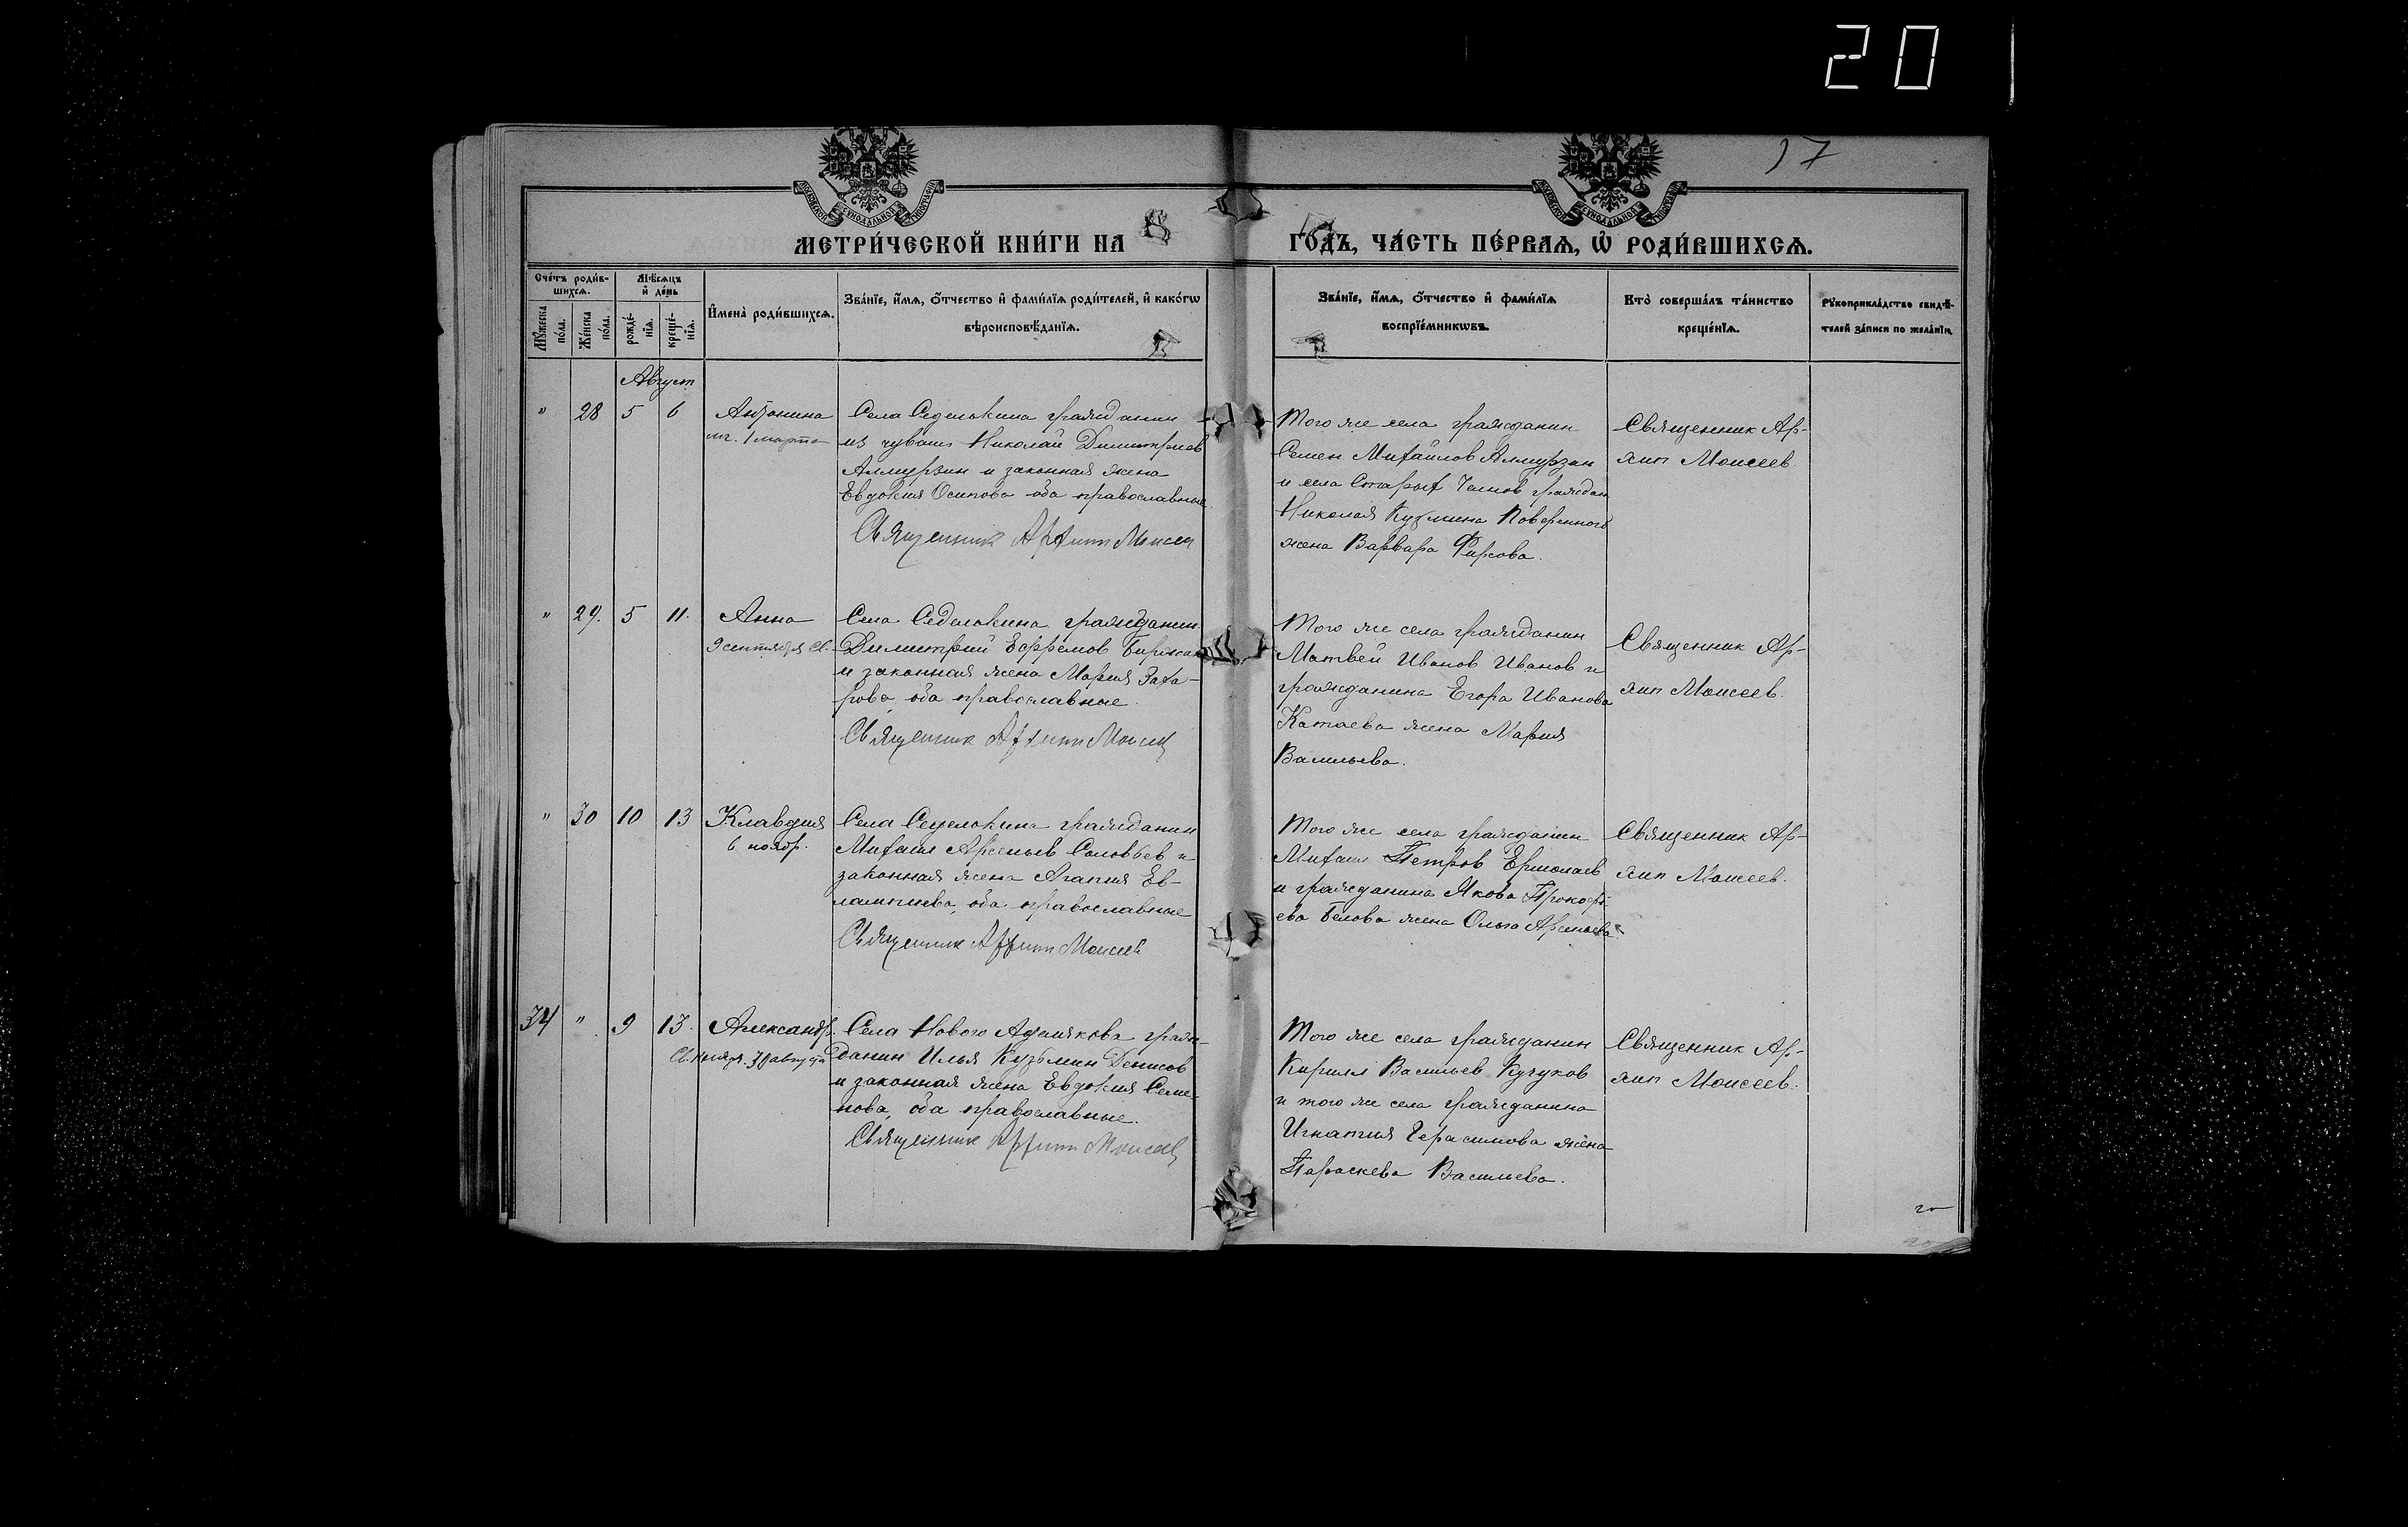 20
17
МОСКОВСКОЙ СѴНОДАЛЬНОЙ ТИПОГРАФІИ
МОСКОВСКОЙ СѴНОДАЛЬНОЙ ТИПОГРАФІИ
МЕТРИ́ЧЕСКОЙ КНИ́ГИ НА
ГО́ДЪ, ЧА́СТЬ ПЕ́РВАѦ, Ѡ҆ РОДИ́ВШИХСѦ.
Сче́тъ роди́в-
шихсѧ.
Мꙋ́жеска по́ла.
Же́нска по́ла.
Мѣ́сѧцъ
и҆ де́нь
рожде́-
нїѧ.
креще́-
нїѧ.
И҆мена̀ роди́вшихсѧ.
Зва́нїе, и҆́мѧ, ѻ҆́тчество и҆ фамилїѧ роди́телей, и҆ како́гѡ
вѣроисповѣ́данїѧ.
Зва́нїе, и҆́мѧ, ѻ҆́тчество и҆ фами́лїѧ
воспрїе́мникѡвъ.
Кто̀ соверша́лъ та́инство
креще́нїѧ.
Рꙋкоприкла́дство свидѣ́-
телей за́писи по жела́нїю.
Август
" 28 5 6
Антонина
мч. 1 марта
Села Седелькина гражданин
из чуваш Николай Димитриев
Алмурзин и законная жена
Евдокия Осипова оба православные.
Священник Архипп Моисеев
Того же села гражданин
Семен Михайлов Алмурзин
и села Старых Челнов граждан
Николая Кузмина Поверенного
жена Варвара Фирсова.
Священник Ар-
хип Моисеев.
" 29. 5 11.
Анна
9 сентября св.
Села Седелькина гражданин
Димитрий Ефремов
и законная жена Мария Заха-
рова, оба православные.
Священник Архипп Моисеев
Того же села гражданин
Матвей Иванов Иванов и
гражданина Егора Иванова
Катаева жена Мария
Васильева.
Священник Ар-
хип Моисеев.
" 30 10 13
Клавдия
6 ноябр.
Села Седелькина гражданин
Михаил Арсеньев Соловьев и
законная жена Агапия Ев-
лампиева, оба православные
Священник Архипп Моисеев
Того же села гражданин
Михаил Петров Ермолаев
и гражданина Якова Прокофь-
ева Белова жена Ольга Арсеньева.
Священник Ар-
хип Моисеев.
34 " 9 13.
Александр.
30 августа
Села Нового Адамякова граж-
данин Илья Кузьмин Денисов
и законная жена Евдокия Семе-
нова, оба православные.
Священник Архипп Моисеев
Того же села гражданин
Кирилл Васильев Кучуков
и того же села гражданина
Игнатия Герасимова жена
Параскева Васильева.
Священник Ар-
хип Моисеев.
20